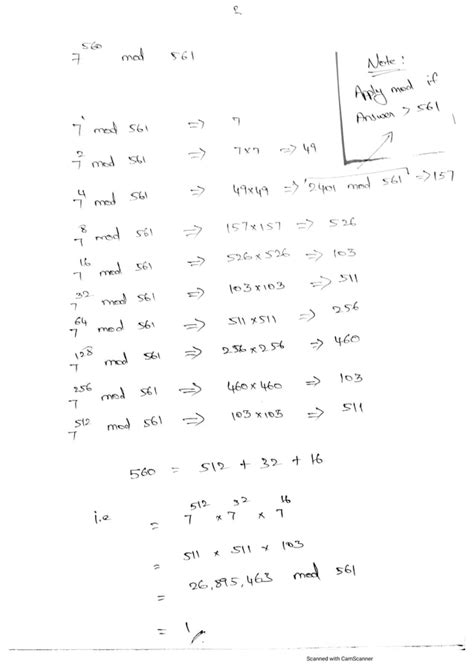 2
7^560 mod 561
Note:
Apply mod if
Answer > 561
7^1 mod 561 => 7
7^2 mod 561 => 7x7 => 49
7^4 mod 561 => 49x49 => 2401 mod 561 => 157
7^8 mod 561 => 157x157 => 526
7^16 mod 561 => 526x526 => 103
7^32 mod 561 => 103x103 => 511
7^64 mod 561 => 511x511 => 256
7^128 mod 561 => 256x256 => 460
7^256 mod 561 => 460x460 => 103
7^512 mod 561 => 103x103 => 511
560 = 512 + 32 + 16
i.e = 7^512 x 7^32 x 7^16
= 511 x 511 x 103
= 26,895,463 mod 561
= 1
Scanned with CamScanner